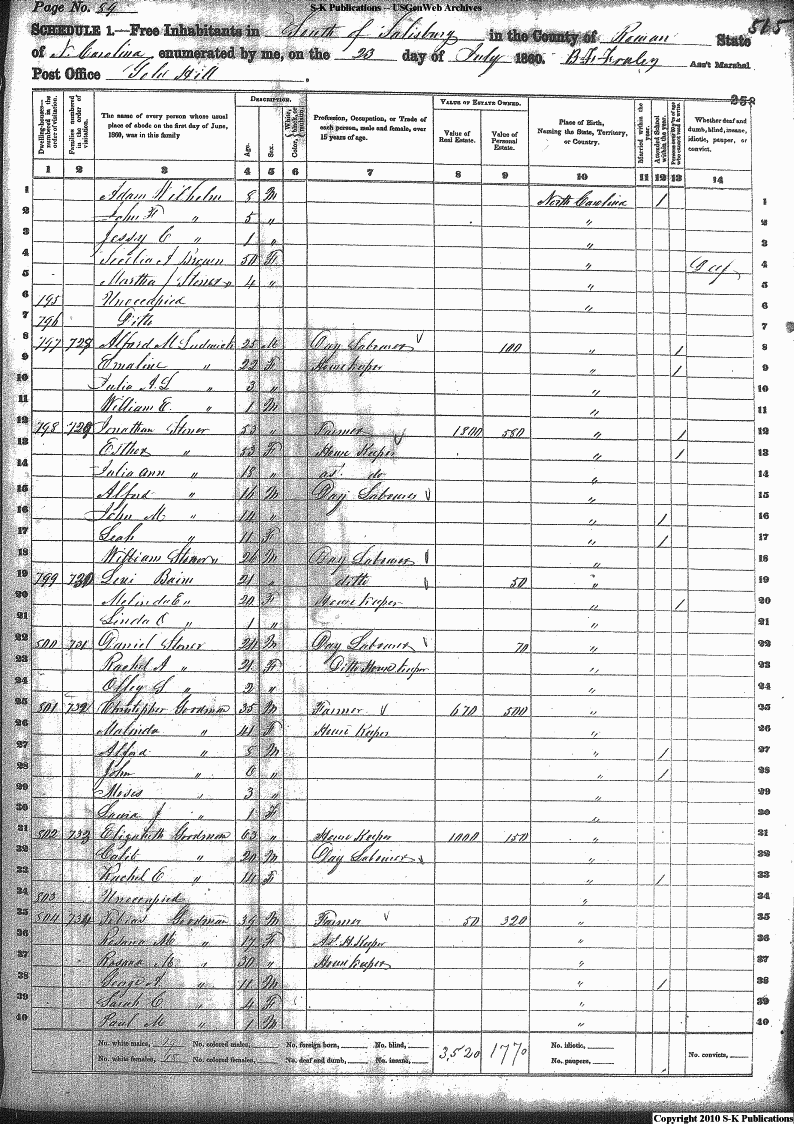 S-K Publications -- USGenWeb Archives
Page No. 54
515
SCHEDULE 1.—Free Inhabitants in South of Salisbury in the County of Rowan State
of N. Carolina, enumerated by me, on the 23 day of July 1860. Ass't Marshal
Post Office Gold Hill
258
Dwelling-houses—numbered in the order of visitation. Families numbered in the order of visitation. The name of every person whose usual place of abode on the first day of June, 1860, was in this family. DESCRIPTION. Age. Sex. Color, White, black, or mulatto. Profession, Occupation, or Trade of each person, male and female, over 15 years of age. VALUE OF ESTATE OWNED. Value of Real Estate. Value of Personal Estate. Place of Birth, Naming the State, Territory, or Country. Married within the year. Attended School within the year. Whether deaf and dumb, blind, insane, idiotic, pauper, or convict.
1 2 3 4 5 6 7 8 9 10 11 12 13 14
1 Adam Wilhelm 8 M North Carolina / 1
2 John F " 5 " " 2
3 Jessy C " 1 " " 3
4 Brown 50 F " Deaf 4
5 Martha J Stoner 4 " " 5
6 195 Unoccupied " 6
7 796 Ditto 7
8 797 728 Alford M Ludwick 25 M Day Labourer 100 " / 8
9 Emaline " 22 F House Keeper " / 9
10 Julia A L " 3 " " 10
11 William E. " 1 M " 11
12 798 729 Jonathan Stoner 53 " Farmer 1800 580 " / 12
13 Esther " 53 F House Keeper " / 13
14 Julia Ann " 18 " as' do " 14
15 Alford " 16 M Day Labourer " 15
16 John M. " 14 " " / 16
17 Leah " 11 F " / 17
18 William Stoner 26 M Day Labourer " 18
19 799 730 Levi Baim 21 " ditto 50 " 19
20 Melinda E " 20 F House Keeper " / 20
21 Linda C " 1 " " 21
22 800 731 Daniel Stoner 24 M Day Labourer 70 " 22
23 Rachel A " 21 F Ditto House Keeper " 23
24 S " 2 " " 24
25 801 732 Christopher Goodman 35 M Farmer 670 500 " 25
26 Malinda " 41 F House Keeper " 26
27 Alford " 8 M " / 27
28 John " 6 " " / 28
29 Moses " 3 " " 29
30 Laura J " 1 F " 30
31 802 733 Elizabeth Goodman 63 " House Keeper 1000 150 " 31
32 Calib " 20 M Day Labourer " 32
33 Rachel C " 14 F " / 33
34 803 Unoccupied " 34
35 804 734 Tobias Goodman 39 M Farmer 50 320 " 35
36 Rosana M " 17 F As'. H. Keeper " 36
37 Rosana M " 30 " House Keeper " 37
38 George A. " 11 M " / 38
39 Sarah C " 4 F " 39
40 Paul M " 1 M " 40
No. white males, 19 No. colored males, No. foreign born, No. blind, 3,520 1770 No. idiotic,
No. white females, 18 No. colored females, No. deaf and dumb, No. insane, No. paupers, No. convicts,
Copyright 2010 S-K Publications